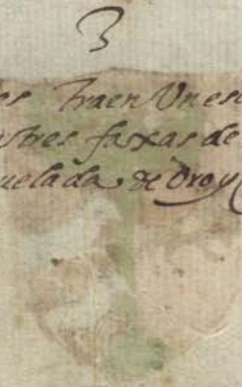 3
es Traen Vn es
stres faxas de
uelada de Oro y